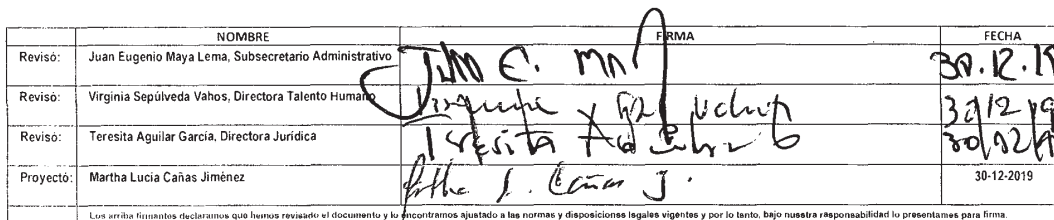 NOMBRE FIRMA FECHA
Revisó: Juan Eugenio Maya Lema, Subsecretario Administrativo Juan E. 30.12.19
Revisó: Virginia Sepúlveda Vahos, Directora Talento Humano 30/12/19
Revisó: Teresita Aguilar García, Directora Jurídica Teresita 30/12/19
Proyectó: Martha Lucia Cañas Jiménez L. Cañas J. 30-12-2019
Los arriba firmantes declaramos que hemos revisado el documento y lo encontramos ajustado a las normas y disposiciones legales vigentes y por lo tanto, bajo nuestra responsabilidad lo presentamos para firma.